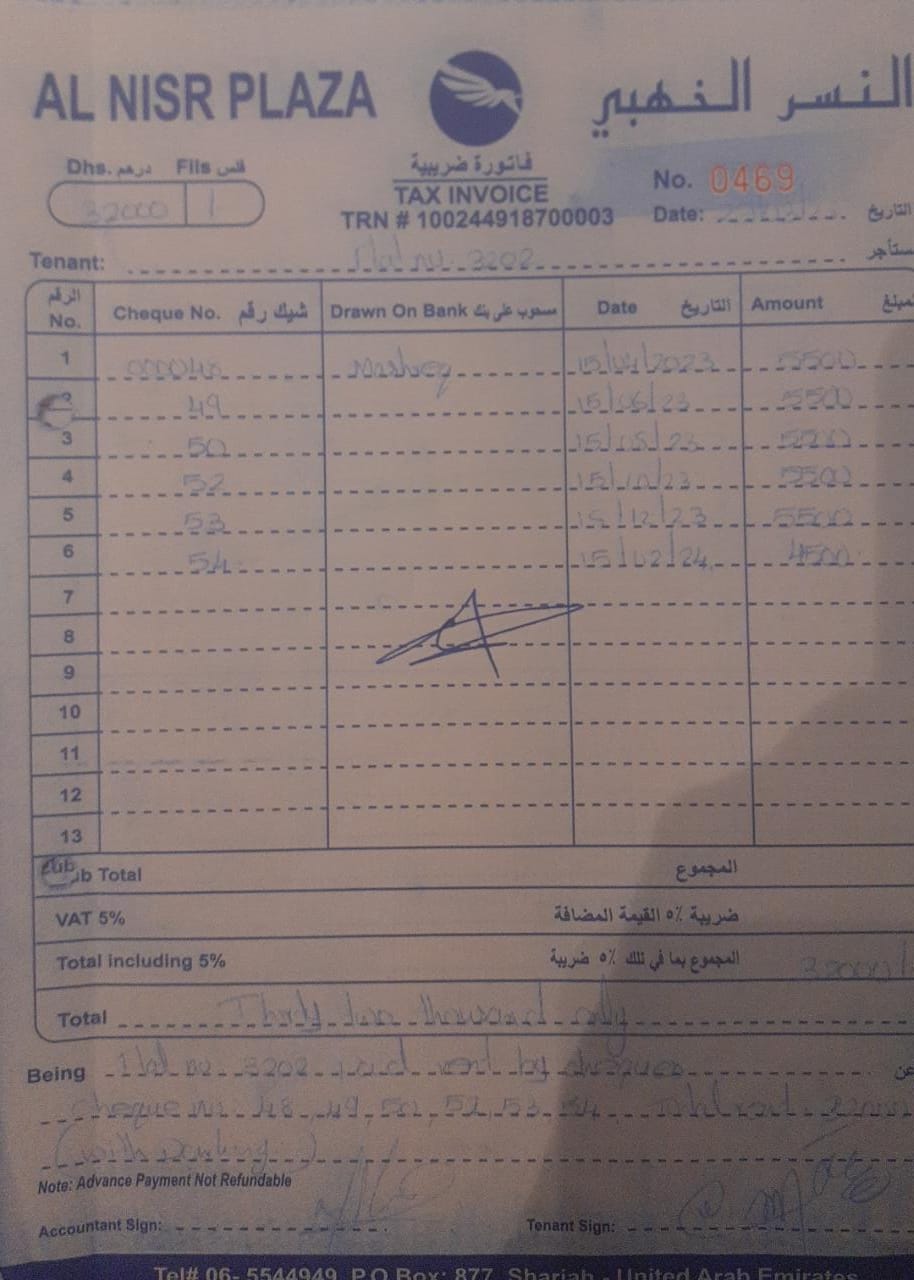 AL NISR PLAZA النسر الذهبي
Dhs. درهم Fils فلس
فاتورة ضريبية
No. 0469
32000 1
TAX INVOICE
TRN # 100244918700003
Date: التاريخ
Tenant: Flat no. 3202 ستأجر
الرقم No. Cheque No. شيك رقم Drawn On Bank مسحوب على بنك Date التاريخ Amount مبلغ
1 000048 Mashreq 15/04/2023 5500
2 49 15/06/23 5500
3 50 15/08/23 5500
4 52 15/10/23 5500
5 53 15/12/23 5500
6 54 15/02/24 4500
7
8
9
10
11
12
13
Sub Total المجموع
VAT 5% ضريبة ٥٪ القيمة المضافة
Total including 5% المجموع بما في تلك ٥٪ ضريبة 32000/
Total Thirty two thousand only
Being Flat no. 3202 paid rent by cheques عن
Cheque no. 48, 49, 50, 52, 53, 54 Total rent 32000
(with parking)
Note: Advance Payment Not Refundable
Accountant Sign: Tenant Sign:
Tel# 06- 5544949, P.O Box: 877, Sharjah - United Arab Emirates